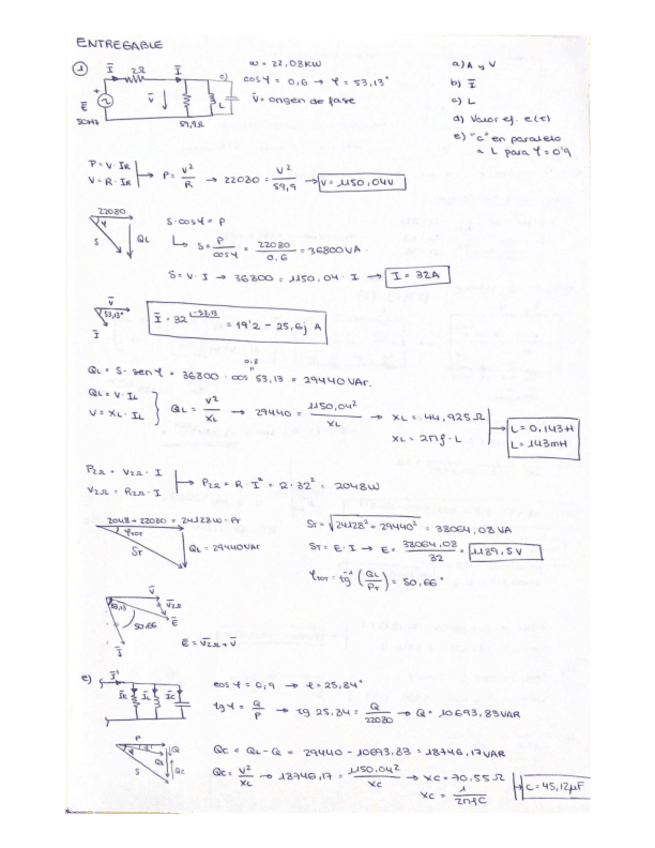 ENTREGABLE
1
Ī 2Ω Ī e)
Ē V̄ L
50Hz 59,9Ω
w = 22,08KW
cosφ = 0,6 → φ = 53,13°
V̄ = origen de fase
a) A y V
b) Ī
c) L
d) Valor ef. e(t)
e) "C" en paralelo
a L para φ = 0'9
P = V · IR
V = R · IR
P = V²/R → 22080 = V²/59,9 → V = 1150,04V
22080
φ
S QL
S · cosφ = P
S = P/cosφ = 22080/0,6 = 36800VA.
S = V · I → 36800 = 1150,04 · I → I = 32A
V̄
53,13°
Ī
Ī = 32 ∟-53,13 = 19'2 - 25,6j A
0.8
QL = S · senφ = 36800 · cos 53,13 = 29440VAr.
QL = V · IL
V = XL · IL
QL = V²/XL → 29440 = 1150,04²/XL → XL = 44,925Ω
XL = 2πf · L
L = 0,143H
L = 143mH
P2Ω = V2Ω · I
V2Ω = R2Ω · I
P2Ω = R · I² = 2 · 32² = 2048W
2048 + 22080 = 24128W = PT
φTOT
ST QL = 29440VAr
ST = √24128² + 29440² = 38064,08VA
ST = E · I → E = 38064,08/32 = 1189,5V
φTOT = tg⁻¹ (QL/PT) = 50,66°
V̄
53,13 V̄2Ω
Ē
50,66
Ī
Ē = V̄2Ω + V̄
e) Ī'
ĪR ĪL ĪC
cosφ = 0,9 → φ = 25,84°
tgφ = Q/P → tg 25,84 = Q/22080 → Q = 10693,83VAR
P
φ Q
QL
S QC
QC = QL - Q = 29440 - 10693,83 = 18746,17VAR
QC = V²/XC → 18746,17 = 1150,04²/XC → XC = 70,55Ω
XC = 1/2πfC
C = 45,12μF